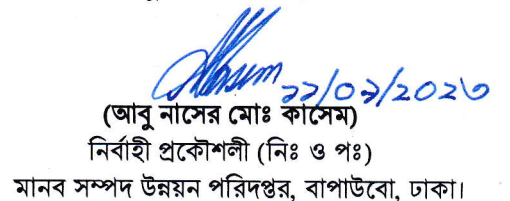 (আবু নাসের মোঃ কাসেম)
নির্বাহী প্রকৌশলী (নিঃ ও পঃ)
মানব সম্পদ উন্নয়ন পরিদপ্তর, বাপাউবো, ঢাকা।